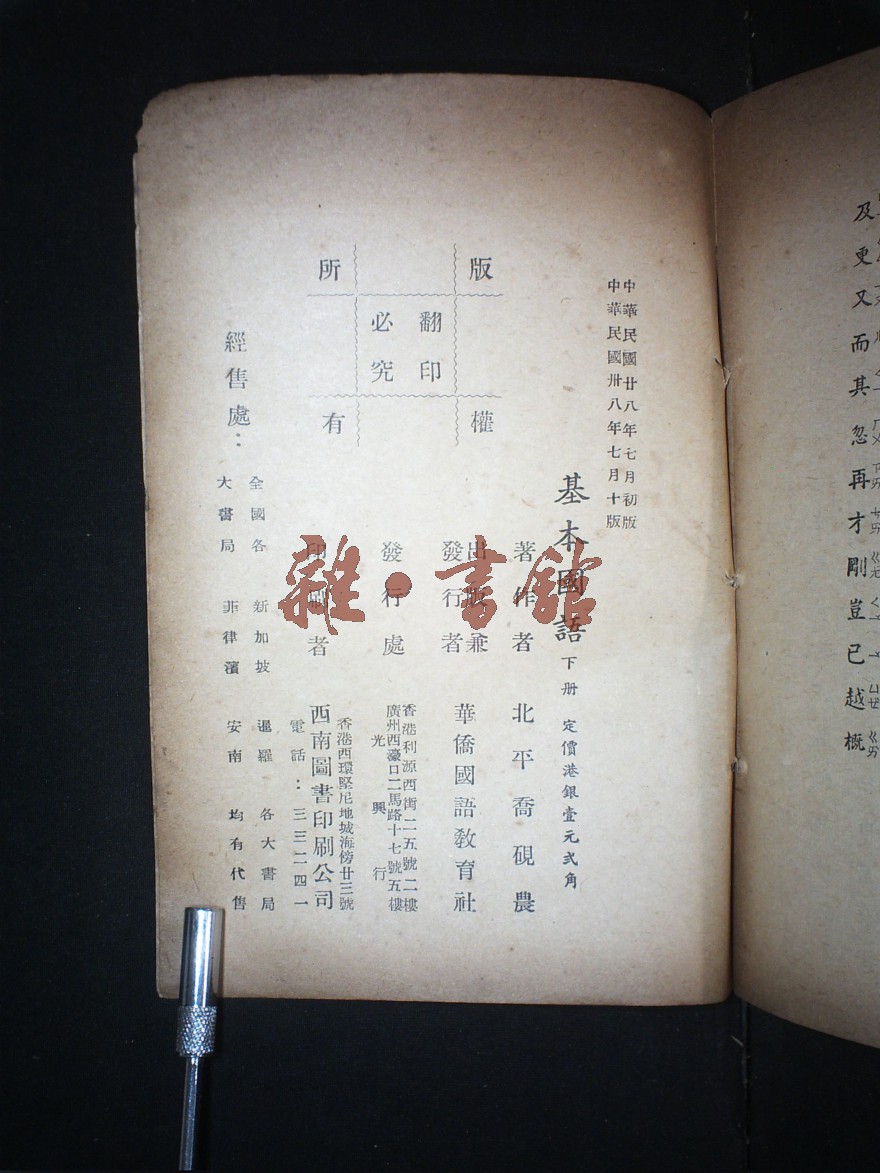 及更又而其忽再才剛豈已越概
中華民國廿八年七月初版
中華民國卅八年七月十版
基本國語 下册 定價港銀壹元弍角
版權所有
翻印必究
著作者 北平喬硯農
出版兼發行者 華僑國語教育社
發行處 香港利源西街二五號二樓
廣州西濠口二馬路十七號五樓
光興行
印刷者 西南圖書印刷公司
香港西環堅尼地城海傍廿三號
電話：三三二四一
經售處：
全國各大書局
新加坡 暹羅 各大書局
菲律濱 安南 均有代售
雜·書館